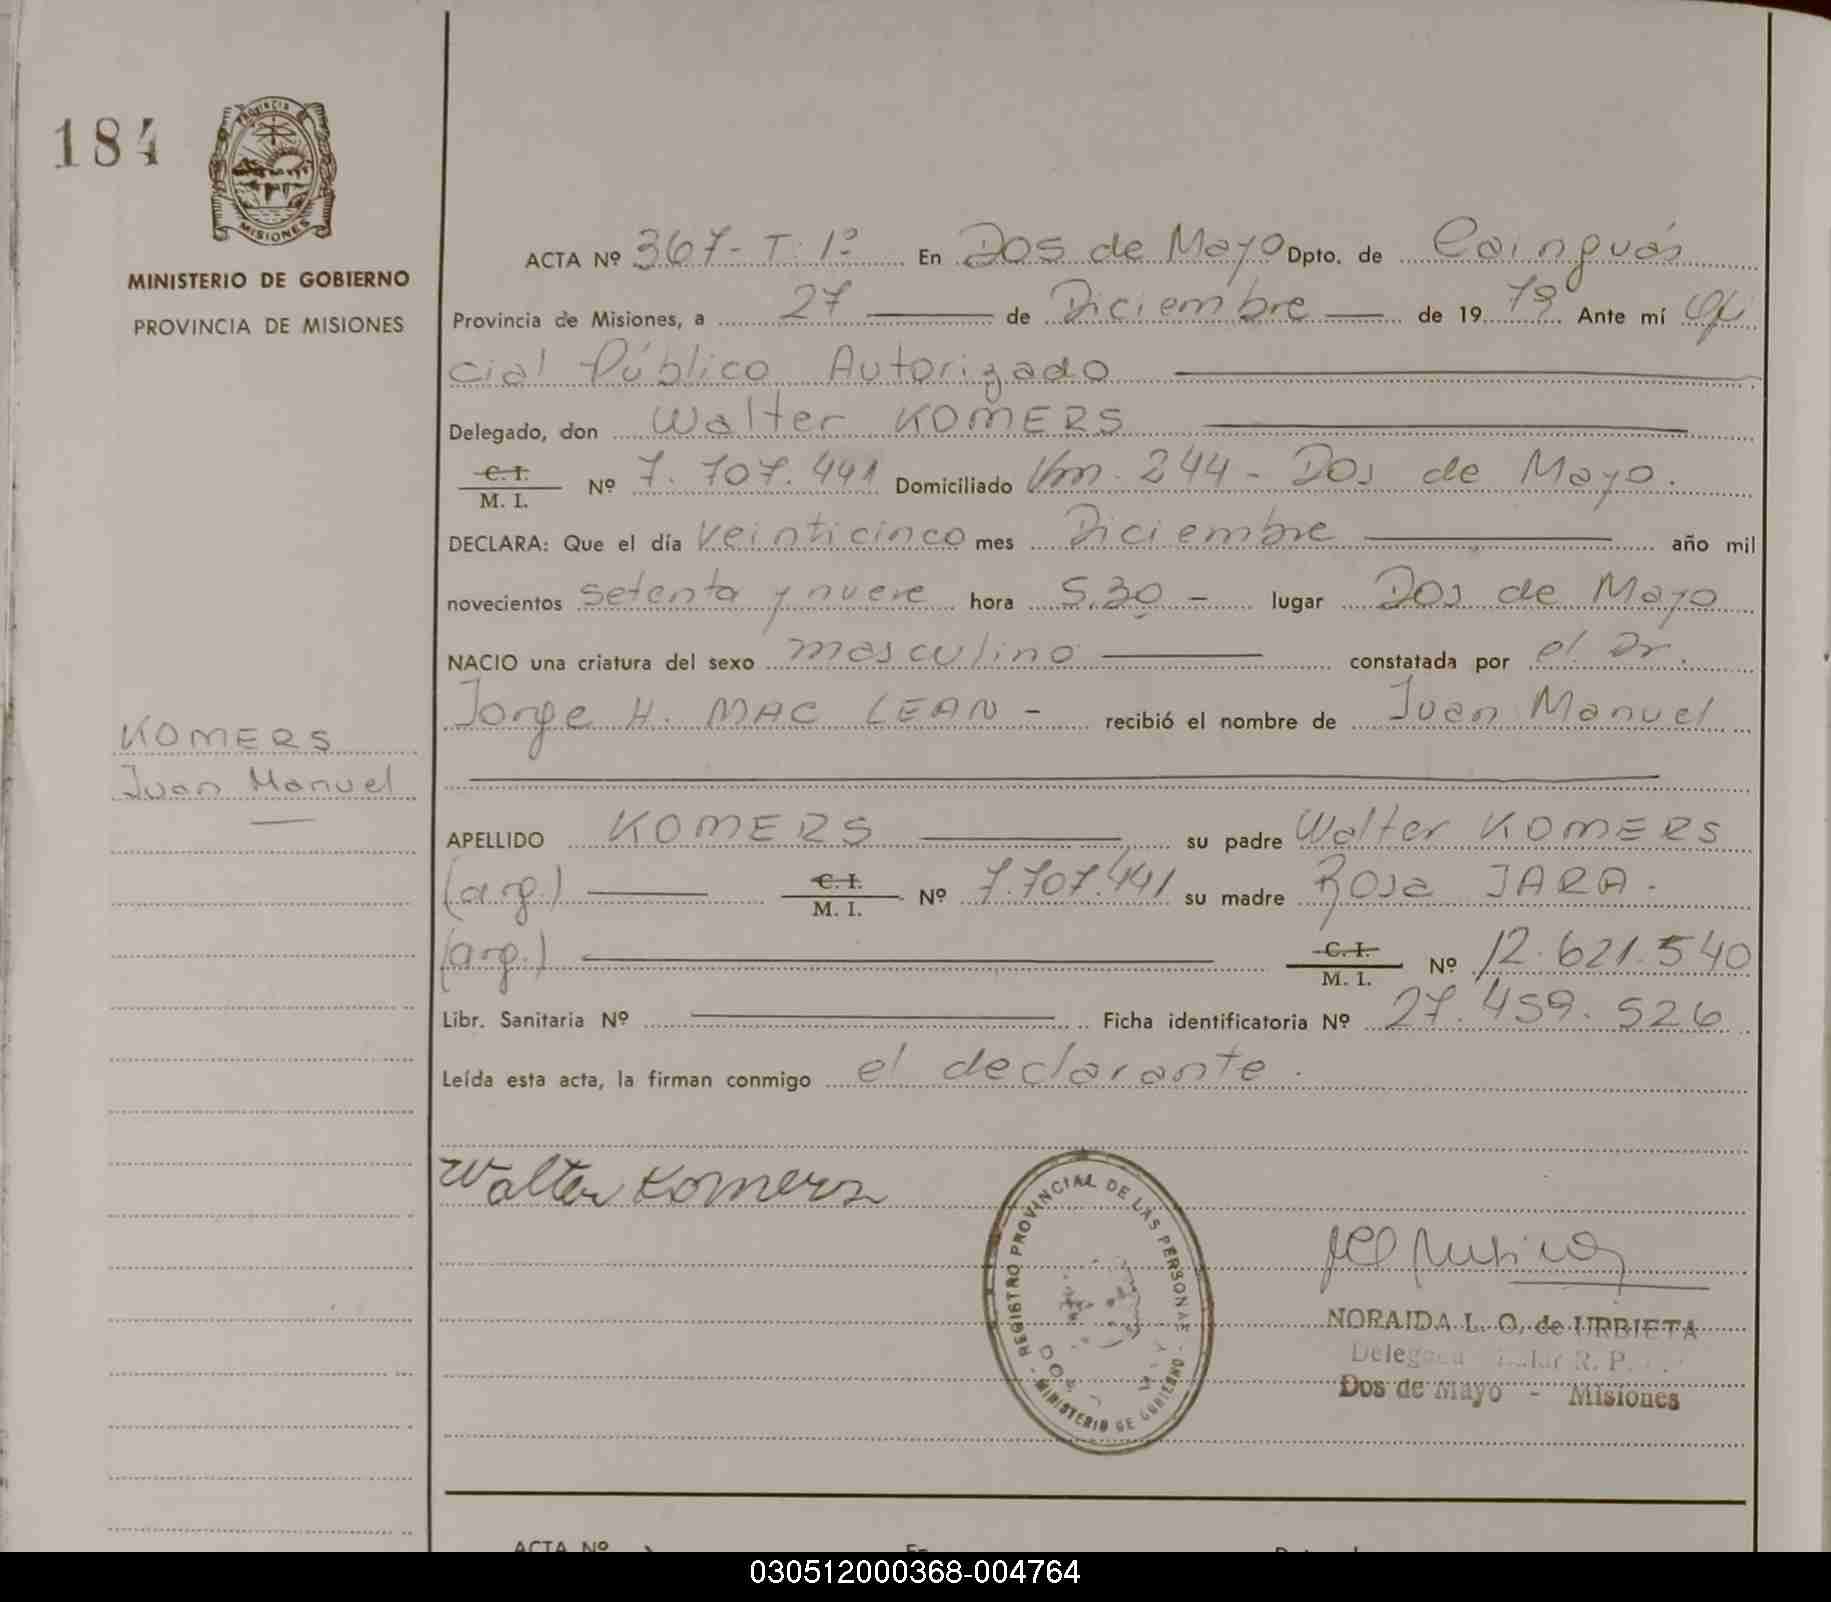 184
PROVINCIA
MISIONES
MINISTERIO DE GOBIERNO
PROVINCIA DE MISIONES
ACTA Nº 367- T. 1º En Dos de Mayo Dpto. de Cainguás
Provincia de Misiones, a 27 de Diciembre de 19 79 Ante mí Ofi
cial Público Autorizado
Delegado, don Walter KOMERS
C. I.
M. I. Nº 7.707.441 Domiciliado Km. 244 - Dos de Mayo.
DECLARA: Que el día veinticinco mes Diciembre año mil
novecientos setenta y nueve hora 5.30 - lugar Dos de Mayo
NACIO una criatura del sexo masculino constatada por el Dr.
Jorge H. MAC LEAN - recibió el nombre de Juan Manuel
KOMERS
Juan Manuel
APELLIDO KOMERS su padre Walter KOMERS
(arg.) C. I.
M. I. Nº 7.707.441 su madre Rosa JARA.
(arg.) C. I.
M. I. Nº 12.621.540
Libr. Sanitaria Nº Ficha identificatoria Nº 27.459.526
Leída esta acta, la firman conmigo el declarante.
Walter Komers
REGISTRO PROVINCIAL DE LAS PERSONAS
MINISTERIO DE GOBIERNO
NORAIDA L. O. de URBIETA
R. P.
Dos de Mayo - Misiones
ACTA Nº En
030512000368-004764